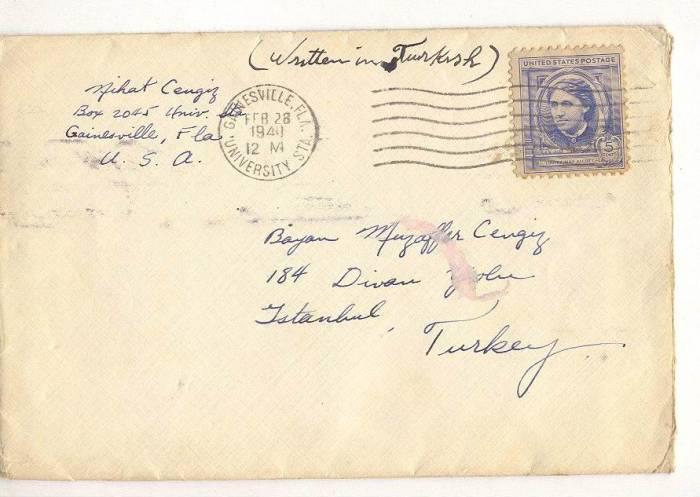 (Written in Turkish)
Nihat Cengiz
Box 2045 Univ. Sta
Gainesville, Fla.
U. S. A.
GAINESVILLE, FLA.
FEB 28
1940
12 M
UNIVERSITY STA.
UNITED STATES POSTAGE
5
Bayan Muzaffer Cengiz
184 Divan yolu
Istanbul,
Turkey